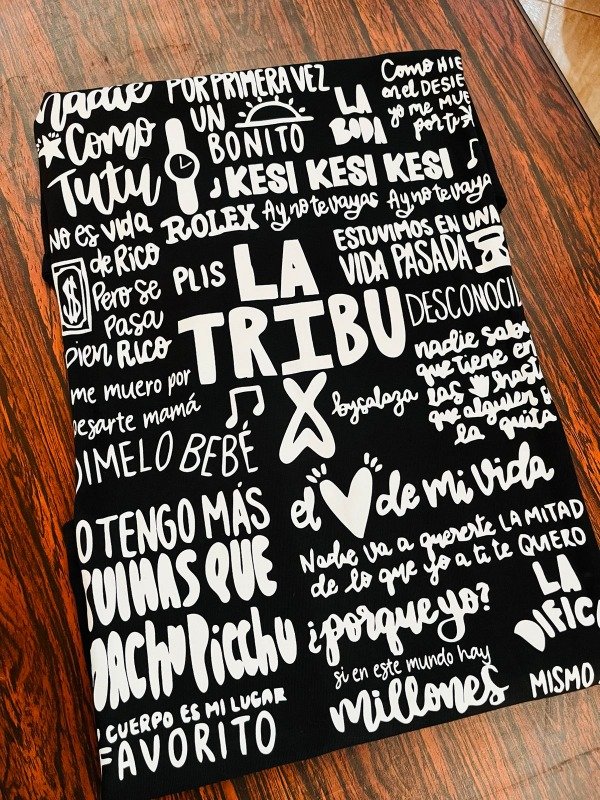 Nadie
Como
Tutu
POR PRIMERA VEZ
UN
BONITO
LA
BODA
Como HIE
en el DESIE
yo me MUE
por ti
KESI KESI KESI
NO es vida
de Rico
Pero se
pasa
bien RICO
ROLEX
Ay no te vayas
Ay no te vaya
ESTUVIMOS EN UNA
VIDA PASADA
$
PLIS
LA
TRIBU
DESCONOCI
nadie sabe
que tiene en
las
hast
que alguien
la quita
me muero por
besarte mamá
DIMELO BEBÉ
bysalaza
el
de mi vida
O TENGO MÁS
RUINAS QUE
MACHU PicchU
Nadie va a quererte LA MITAD
de lo que yo a ti te QUIERO
¿porque yo?
si en este mundo hay
millones
LA
DIFICU
MISMO
CUERPO ES MI LUGAR
FAVORITO